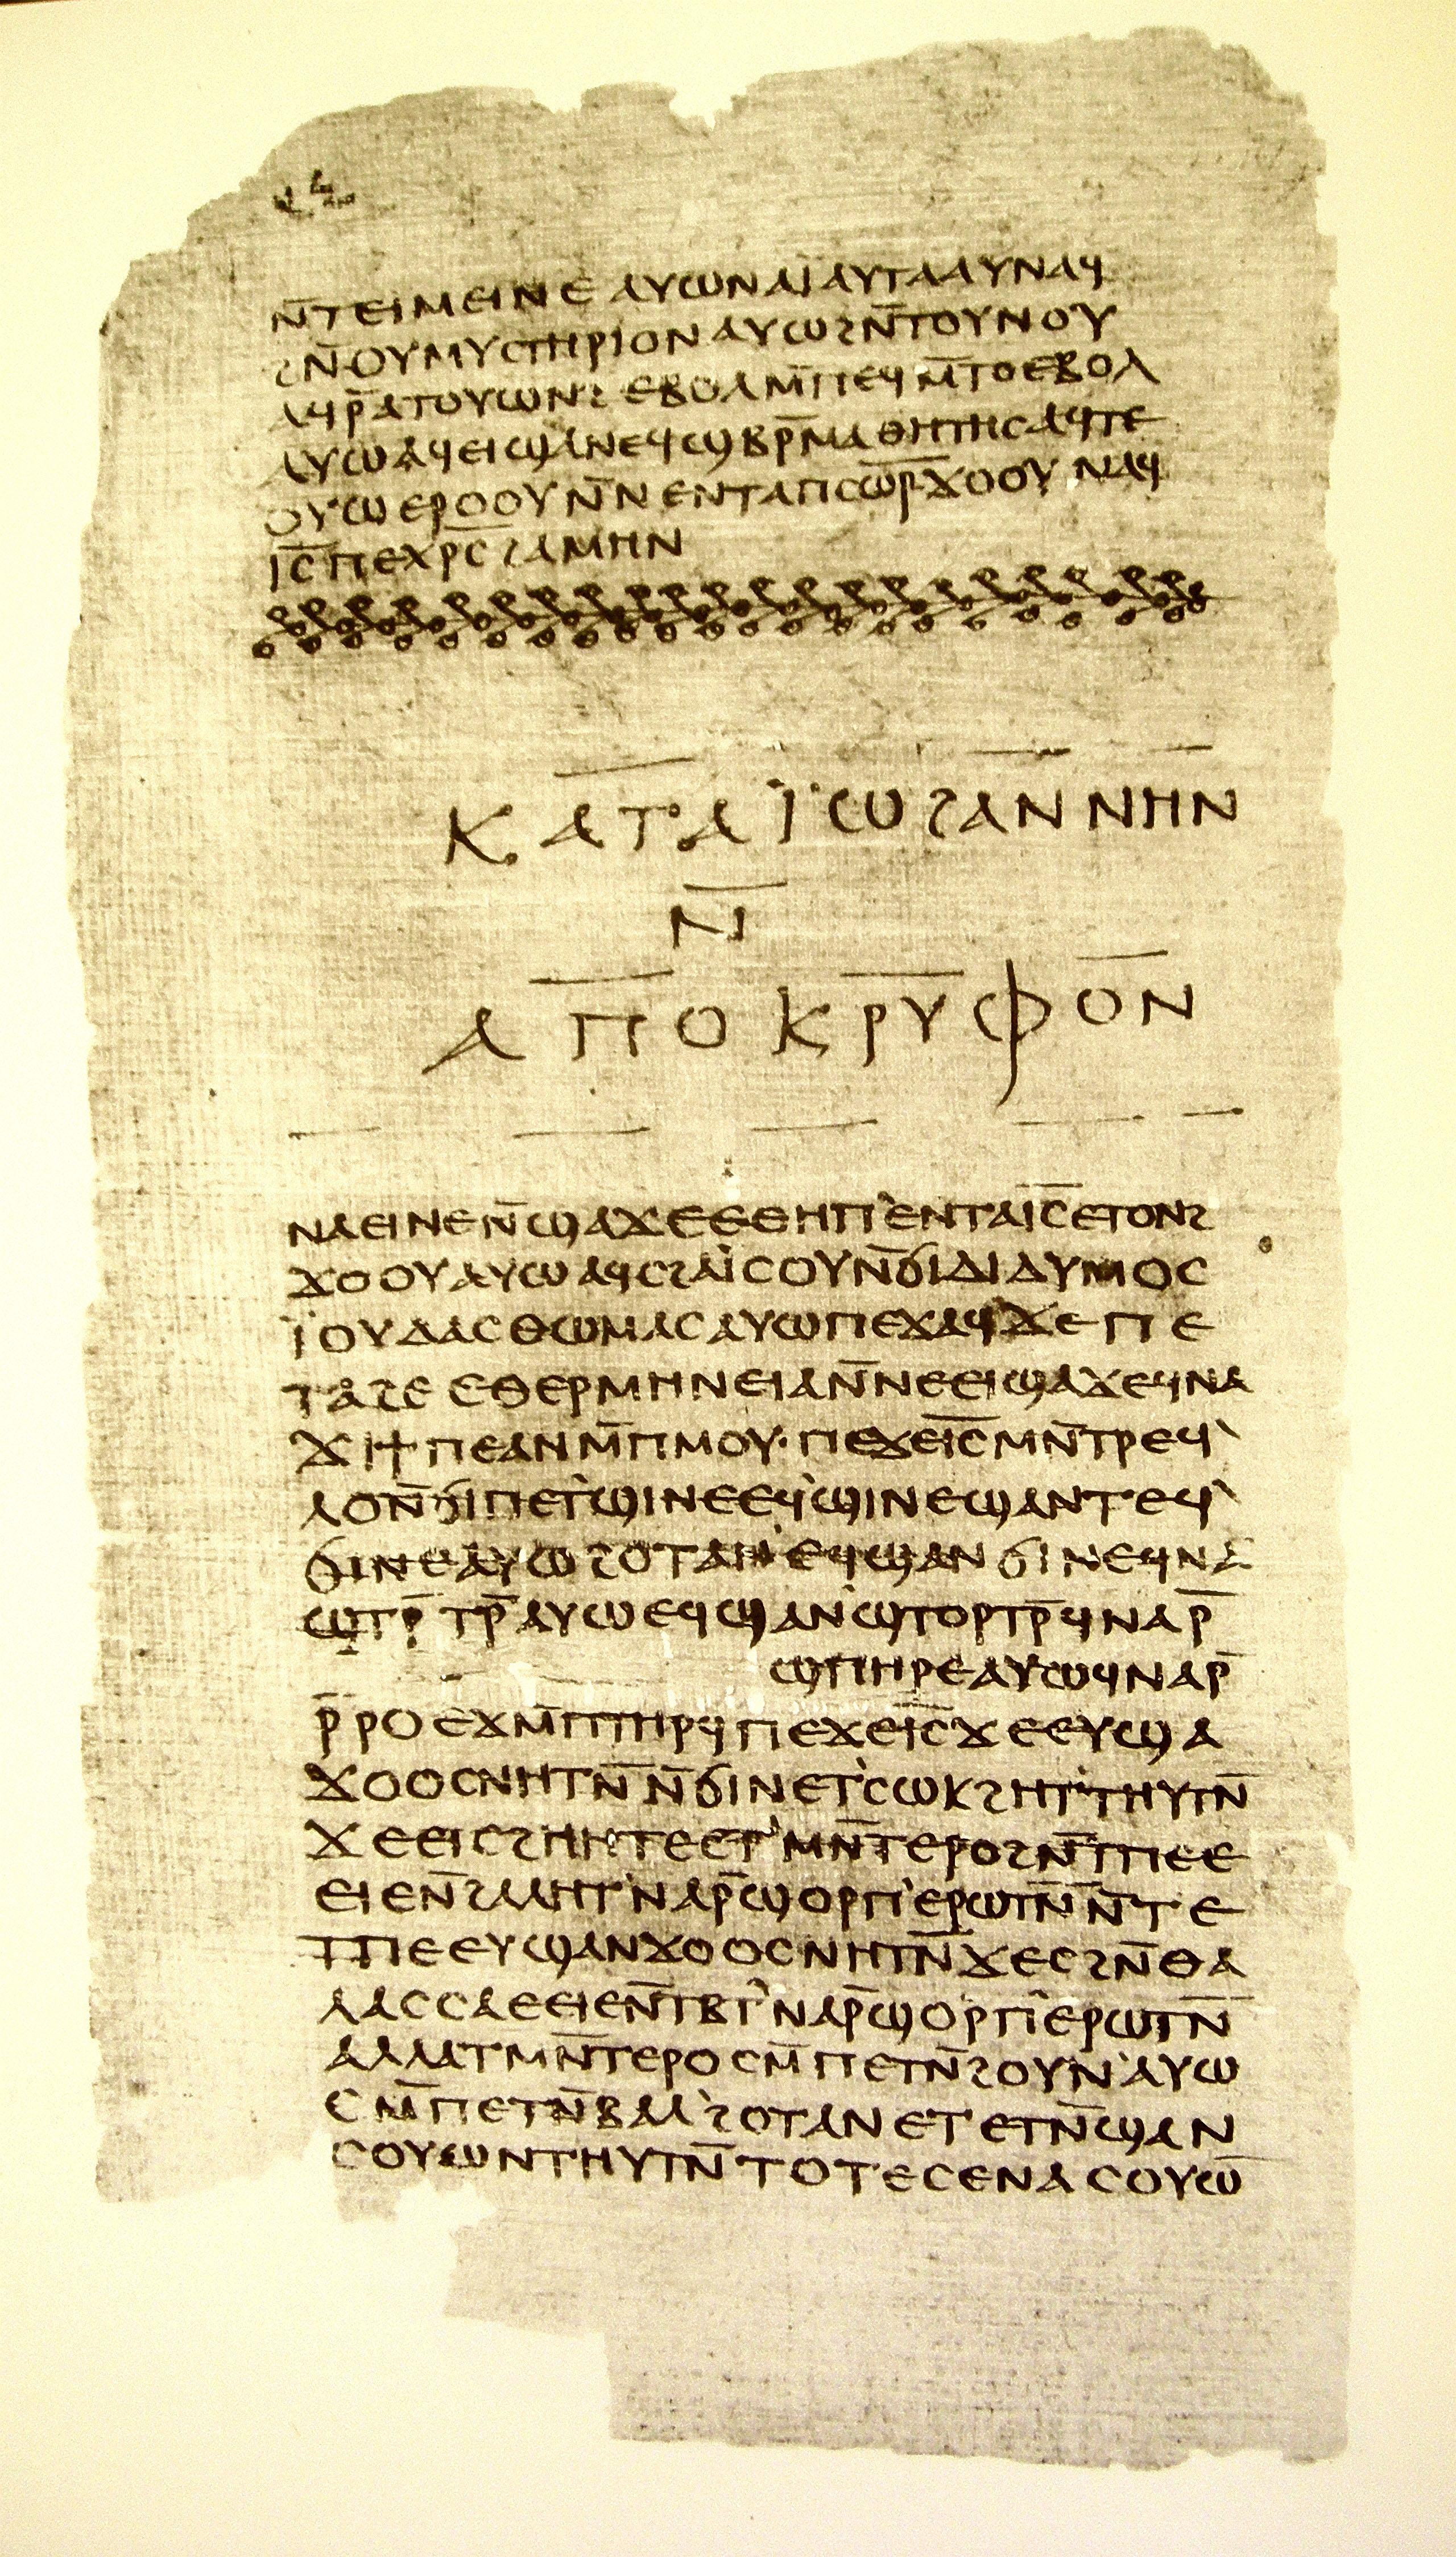 ⲛ̅ⲧⲉⲓⲙⲉⲓⲛⲉ ⲁⲩⲱⲛⲁⲓ̈ⲁⲩⲧⲁⲁⲩⲛⲁϥ
ϩⲛ̅ⲟⲩⲙⲩⲥⲧⲏⲣⲓⲟⲛⲁⲩⲱϩⲛ̅ⲧⲟⲩⲛⲟⲩ
ⲁϥⲣ̅ⲁⲧⲟⲩⲱⲛϩⲉⲃⲟⲗⲙ̅ⲡⲉϥⲙ̅ⲧⲟⲉⲃⲟⲗ
ⲁⲩⲱⲁϥⲉⲓϣⲁⲛⲉϥϣⲃⲣ̅ⲙⲁⲑⲏⲧⲏⲥⲁϥⲧⲉ
ⲟⲩⲱⲉⲣⲟⲟⲩⲛ̅ⲛⲉⲛⲧⲁⲡⲥⲱ̅ⲣ̅ϫⲟⲟⲩⲛⲁϥ
ⲓ̅ⲥ̅ⲡⲉⲭⲣ̅ⲥ̅ϩⲁⲙⲏⲛ
ⲕⲁⲧⲁⲓ̈ⲱϩⲁⲛⲛⲏⲛ
ⲛ̅
ⲁⲡⲟⲕⲣⲩⲫⲟⲛ
ⲛⲁⲉⲓⲛⲉⲛ̅ϣⲁϫⲉⲉⲑⲏⲡ`ⲉⲛⲧⲁⲓ̅ⲥ̅ⲉⲧⲟⲛϩ
ϫⲟⲟⲩⲁⲩⲱⲁϥⲥϩⲁⲓ̈ⲥⲟⲩⲛ̅ϭⲓⲇⲓⲇⲩⲙⲟⲥ
ⲓ̈ⲟⲩⲇⲁⲥⲑⲱⲙⲁⲥⲁⲩⲱⲡⲉϫⲁϥϫⲉⲡⲉ
ⲧⲁϩⲉ ⲉⲑⲉⲣⲙⲏⲛⲉⲓⲁⲛ̅ⲛⲉⲉⲓϣⲁϫⲉϥⲛⲁ
ϫⲓϯⲡⲉⲁⲛⲙ̅ⲡⲙⲟⲩ·ⲡⲉϫⲉⲓ̅ⲥ̅ⲙⲛ̅ⲧⲣⲉϥ`
ⲗⲟⲛ̅ϭⲓⲡⲉⲧ`ϣⲓⲛⲉⲉϥ`ϣⲓⲛⲉϣⲁⲛⲧⲉϥ`
ϭⲓⲛⲉⲁⲩⲱϩⲟⲧⲁⲛ`ⲉϥϣⲁⲛϭⲓⲛⲉϥⲛⲁ
ϣⲧⲣ̅ⲧⲣ̅ⲁⲩⲱⲉϥϣⲁⲛ`ϣⲧⲟⲣⲧⲣ̅ϥⲛⲁⲣ̅
ϣⲡⲏⲣⲉⲁⲩⲱϥⲛⲁⲣ̅
ⲣ̅ⲣⲟⲉϫⲙ̅ⲡⲧⲏⲣϥⲡⲉϫⲉⲓ̅ⲥ̅ϫⲉⲉⲩϣⲁ
ϫⲟⲟⲥⲛⲏⲧⲛ̅ⲛ̅ϭⲓⲛⲉⲧ`ⲥⲱⲕϩⲏⲧ`ⲧⲏⲩⲧⲛ̅
ϫⲉⲉⲓⲥϩⲏⲏⲧⲉⲉⲧ`ⲙⲛ̅ⲧⲉⲣⲟϩⲛ̅ⲧⲡⲉⲉ
ⲉⲓⲉⲛ̅ϩⲁⲗⲏⲧ`ⲛⲁⲣ̅ϣⲟⲣⲡ`ⲉⲣⲱⲧⲛ̅ⲛ̅ⲧⲉ
ⲧⲡⲉⲉⲩϣⲁⲛϫⲟⲟⲥⲛⲏⲧⲛ̅ϫⲉⲥϩⲛ̅ⲑⲁ
ⲗⲁⲥⲥⲁⲉⲉⲓⲉⲛ̅ⲧⲃⲧ`ⲛⲁⲣ̅ϣⲟⲣⲡ`ⲉⲣⲱⲧⲛ̅
ⲁⲗⲗⲁⲧⲙⲛ̅ⲧⲉⲣⲟⲥⲙ̅ⲡⲉⲧⲛ̅ϩⲟⲩⲛ`ⲁⲩⲱ
ⲥⲙ̅ⲡⲉⲧⲛ̅ⲃⲁⲗ`ϩⲟⲧⲁⲛⲉⲧⲉⲧⲛ̅ϣⲁⲛ
ⲥⲟⲩⲱⲛⲧⲏⲩⲧⲛ̅ⲧⲟⲧⲉⲥⲉⲛⲁⲥⲟⲩⲱ̅